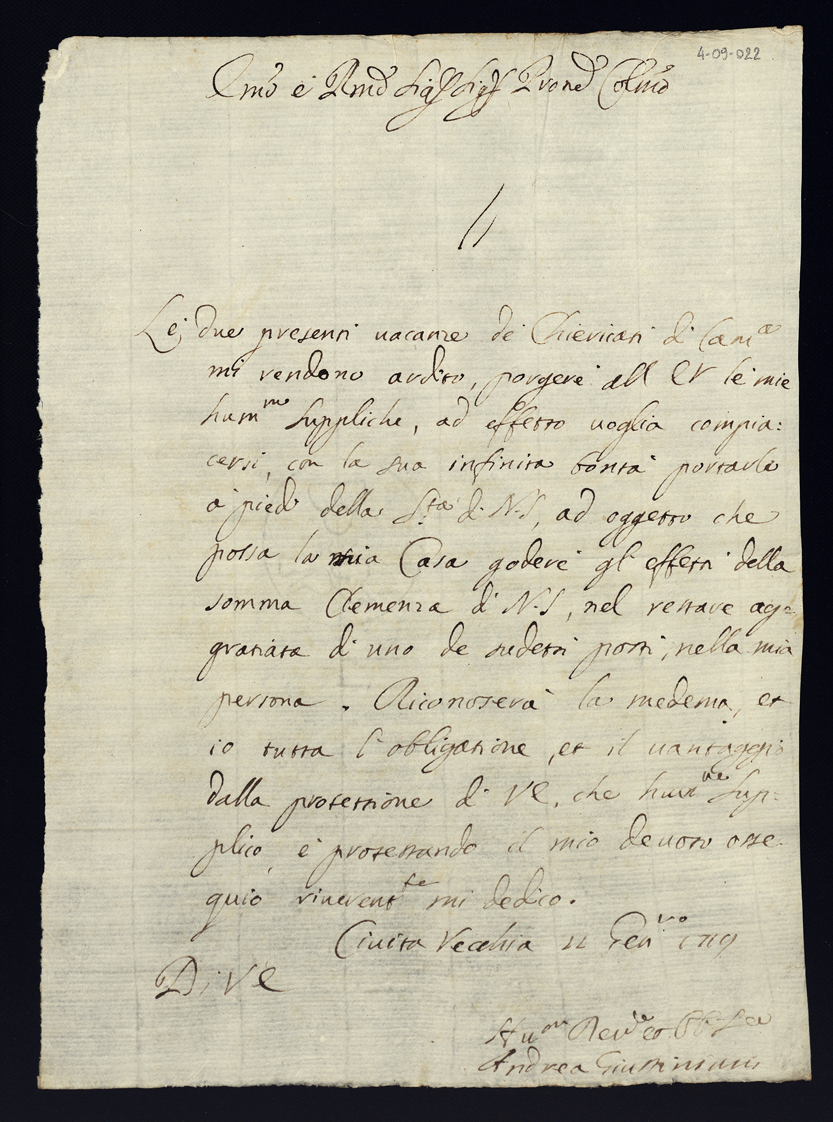 4-09-022
Em̃o e Rmõ Sig.r Sig.r Prone Colmo
Le due presenti uacanze de Chiericati di Cam.a
mi rendono ardito, porgere all EV le mie
hum.me suppliche, ad effetto uoglia compia:
cersi, con la sua infinita bontà portarle
a piedi della S.tà di N.S, ad oggetto che
possa la mia Casa godere gl'effetti della
somma Clemenza di N.S, nel restare ag=
gratiata di uno de sudetti posti, nella mia
persona. Riconoscerà la medema, et
io tutta l'obligatione, et il uantaggio
dalla protettione di VE, che hum.te sup:
plico, e protestando il mio deuoto osse:
quio riuerent.te mi dedico.
Ciuita Vecchia 22 Gen.ro 1719
Di VE
Hu.mo Deu.o et Obb. Ser
Andrea Giustiniani